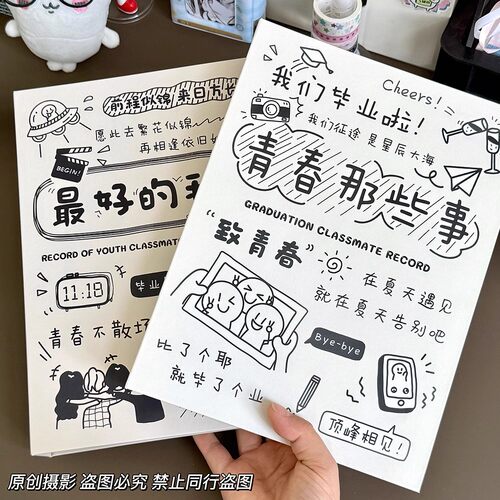 前程似锦 来日方长
愿此去繁花似锦
再相逢依旧如
BEGIN!
最好的我
RECORD OF YOUTH CLASSMATE
11:18
毕业
青春不散场
Cheers!
我们毕业啦!
我们征途 是星辰大海
青春那些事
GRADUATION CLASSMATE RECORD
"致青春"
在夏天遇见
就在夏天告别吧
Bye-bye
比了个耶
就毕了个业
顶峰相见!
原创摄影 盗图必究 禁止同行盗图